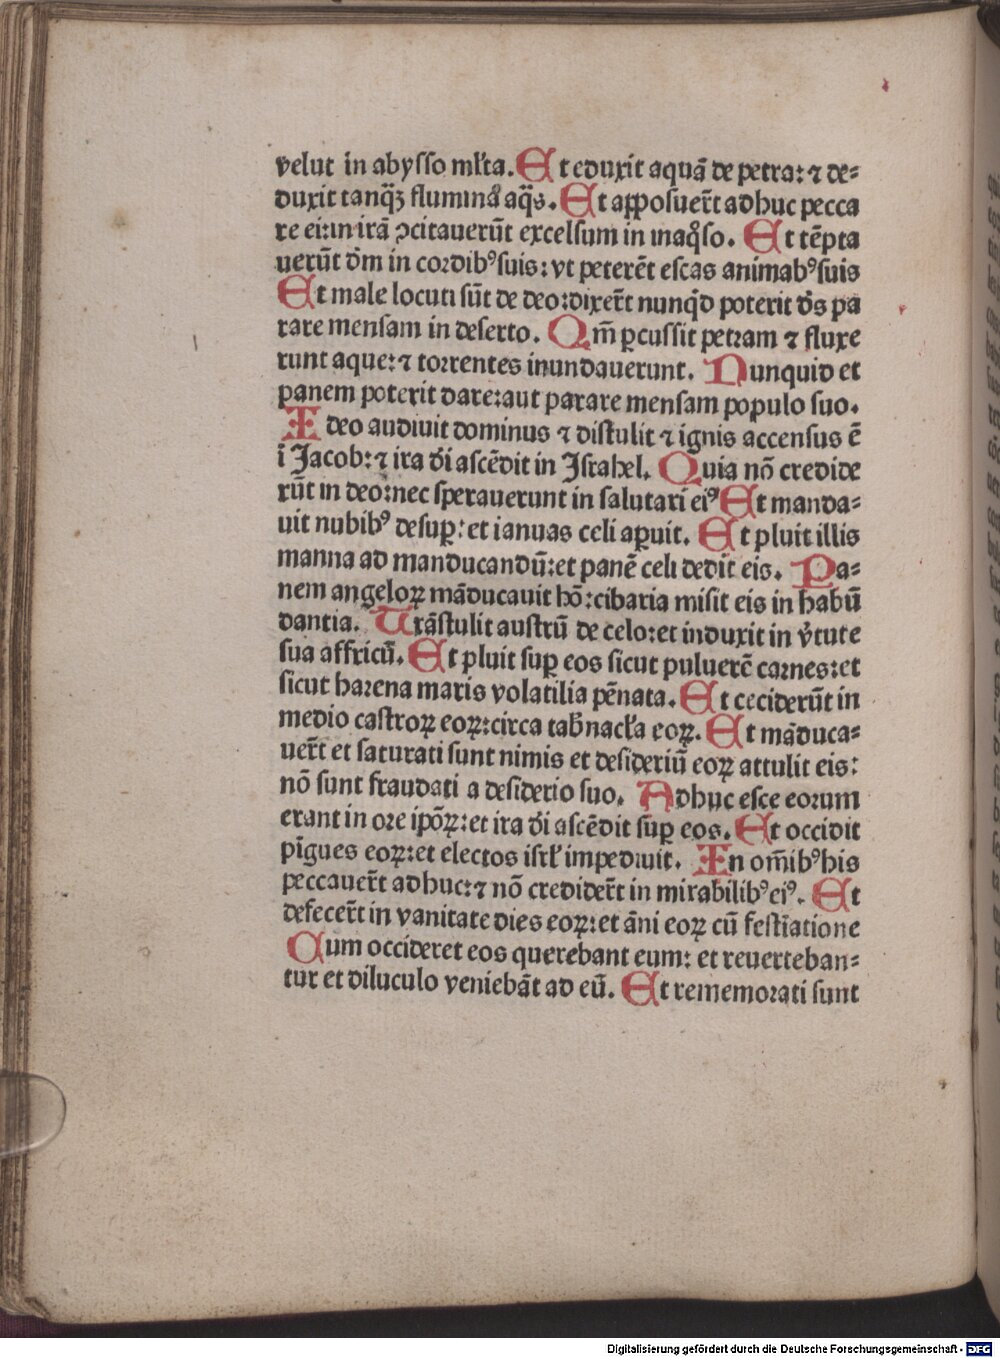 velut in abysso ml̓ta. Et eduxit aquā de petra: ⁊ de⸗
duxit tanq̄ꝫ fluminā aq̄s. Et apposuer̄t adhuc pecca
re ei: in irā ꝯcitauerūt excelsum in inaq̊so. Et tēpta
uerūt dm̄ in cordibꝰ suis: vt peterēt escas animabꝰ suis
Et male locuti sūt de deo: dixer̄t nunqd̓ poterit dn̄s pa
rare mensam in deserto. Qm̄ ꝑcussit petram ⁊ fluxe
runt aque: ⁊ torrentes inundauerunt. Nunquid et
panem poterit dare: aut parare mensam populo suo.
Ideo audiuit dominus ⁊ distulit ⁊ ignis accensus ē
ī Jacob: ⁊ ira dī ascēdit in Israhel. Quia nō credide
rūt in deo: nec sperauerunt in salutari eiꝰ Et manda⸗
uit nubibꝰ desuꝑ: et ianuas celi aꝑuit. Et pluit illis
manna ad manducandū: et panē celi dedit eis. Pa⸗
nem angeloꝝ māducauit hō: cibaria misit eis in habū
dantia. Trāstulit austrū de celo: et induxit in v̓tute
sua affricū. Et pluit suꝑ eos sicut puluerē carnes: et
sicut harena maris volatilia pēnata. Et ceciderūt in
medio castroꝝ eoꝝ: circa tab̄nacl̓a eoꝝ. Et māduca⸗
uer̄t et saturati sunt nimis et desideriū eoꝝ attulit eis:
nō sunt fraudati a desiderio suo. Adhuc esce eorum
erant in ore ipōꝝ: et ira dī ascēdit suꝑ eos. Et occidit
pīgues eoꝝ: et electos isrl̓ impediuit. In om̄ibꝰ his
peccauer̄t adhuc: ⁊ nō credider̄t in mirabilibꝰ eiꝰ. Et
defecer̄t in vanitate dies eoꝝ: et āni eoꝝ cū festīatione
Cum occideret eos querebant eum: et reuerteban⸗
tur et diluculo veniebāt ad eū. Et rememorati sunt
Digitalisierung gefördert durch die Deutsche Forschungsgemeinschaft - DFG